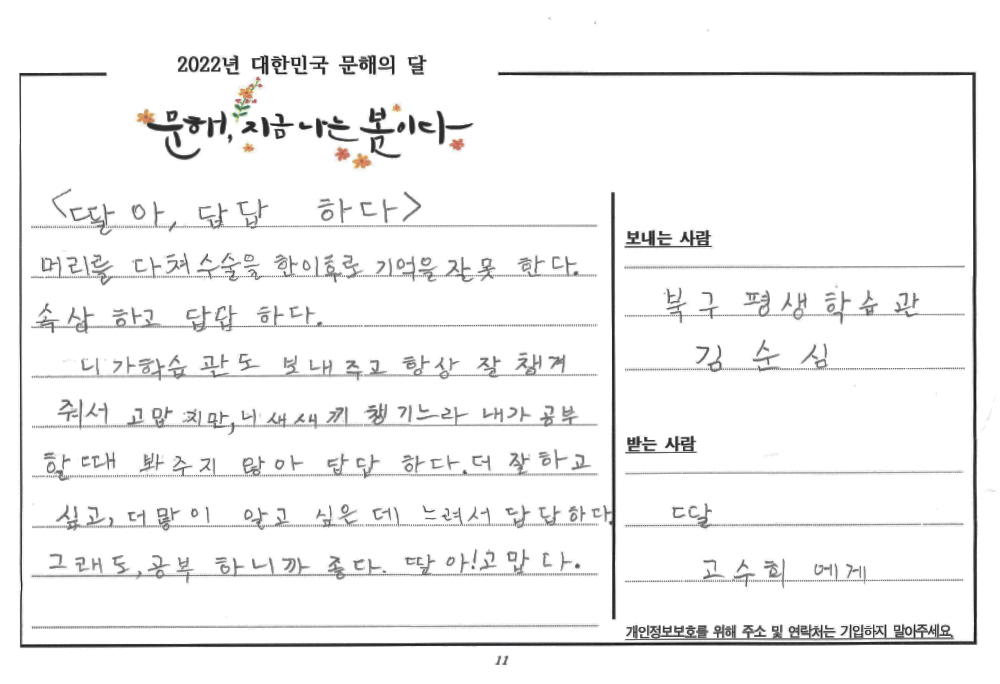 2022년 대한민국 문해의 달
문해, 지금 나는 봄이다
<딸아, 답답 하다>
머리를 다쳐 수술을 한이후로 기억을 잘못 한다.
속삽 하고 답답 하다.
니가학습 관도 보내주고 항상 잘 챙겨
줘서 고맙지만, 니새새끼 챙기느라 내가 공부
할때 봐주지 않아 답답 하다. 더 잘하고
싶고, 더많이 알고 싶은데 느려서 답답하다.
그래도, 공부 하니까 좋다. 딸아! 고맙다.
보내는 사람
북구 평생학습관
김순심
받는 사람
딸
고수희 에게
개인정보보호를 위해 주소 및 연락처는 기입하지 말아주세요.
11